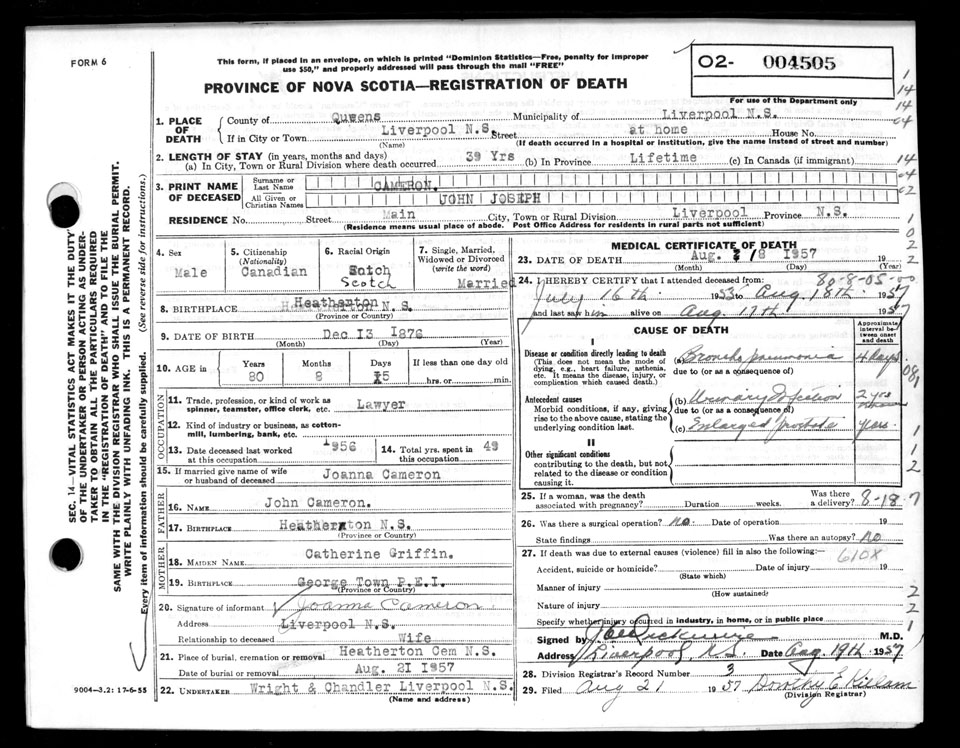 FORM 6
This form, if placed in an envelope, on which is printed "Dominion Statistics—Free, penalty for improper
use $50," and properly addressed will pass through the mail "FREE"
PROVINCE OF NOVA SCOTIA—REGISTRATION OF DEATH
O2- 004505
For use of the Department only
1. PLACE OF DEATH
County of Quwens Municipality of Liverpool N.S.
If in City or Town Liverpool N.S. Street at home House No.
(Name) (If death occurred in a hospital or institution, give the name instead of street and number)
2. LENGTH OF STAY (in years, months and days)
(a) In City, Town or Rural Division where death occurred 39 Yrs (b) In Province Lifetime (c) In Canada (if immigrant)
3. PRINT NAME OF DECEASED
Surname or Last Name CAMERON.
All Given or Christian Names JOHN JOSEPH
RESIDENCE No. Street Main City, Town or Rural Division Liverpool Province N.S.
(Residence means usual place of abode. Post Office Address for residents in rural parts not sufficient)
4. Sex
Male
5. Citizenship
(Nationality)
Canadian
6. Racial Origin
Sotch
Scotch
7. Single, Married,
Widowed or Divorced
(write the word)
Married
8. BIRTHPLACE Heatherton N.S.
(Province or Country)
9. DATE OF BIRTH Dec 13 1876
(Month) (Day) (Year)
10. AGE in
Years Months Days If less than one day old
80 8 5 hrs. or min.
OCCUPATION
11. Trade, profession, or kind of work as
spinner, teamster, office clerk, etc. Lawyer
12. Kind of industry or business, as cotton-
mill, lumbering, bank, etc.
13. Date deceased last worked
at this occupation 1956
14. Total yrs. spent in
this occupation 49
15. If married give name of wife
or husband of deceased Joanna Cameron
FATHER
16. NAME John Cameron.
17. BIRTHPLACE Heatherxton N.S.
(Province or Country)
MOTHER
18. MAIDEN NAME Catherine Griffin.
19. BIRTHPLACE George Town P.E.I.
(Province or Country)
20. Signature of informant Joanna Cameron
Address Liverpool N.S.
Relationship to deceased Wife
21. Place of burial, cremation or removal Heatherton Cem N.S.
Date of burial or removal Aug. 21 1957
22. UNDERTAKER Wright & Chandler Liverpool N.S.
(Name and address)
9004—3.2: 17-6-55
SEC. 14—VITAL STATISTICS ACT MAKES IT THE DUTY
OF THE UNDERTAKER OR PERSON ACTING AS UNDER-
TAKER TO OBTAIN ALL THE PARTICULARS REQUIRED
IN THE "REGISTRATION OF DEATH" AND TO FILE THE
SAME WITH THE DIVISION REGISTRAR WHO SHALL ISSUE THE BURIAL PERMIT.
WRITE PLAINLY WITH UNFADING INK. THIS IS A PERMANENT RECORD.
Every item of information should be carefully supplied. (See reverse side for instructions.)
MEDICAL CERTIFICATE OF DEATH
23. DATE OF DEATH Aug. 18 1957
(Month) (Day) (Year)
80-8-05-00
24. I HEREBY CERTIFY that I attended deceased from:
July 16th 1953 to Aug. 18th 1957
and last saw him alive on Aug. 17th 1957
CAUSE OF DEATH
Approximate
interval be-
tween onset
and death
I
Disease or condition directly leading to death
(This does not mean the mode of
dying, e.g., heart failure, asthenia,
etc. It means the disease, injury, or
complication which caused death.)
(a) Broncho pneumonia 4 days
due to (or as a consequence of)
081
Antecedent causes
Morbid conditions, if any, giving
rise to the above cause, stating the
underlying condition last.
(b) Urinary Infection 2 yrs
due to (or as a consequence of)
(c) Enlarged prostate years.
II
Other significant conditions
contributing to the death, but not
related to the disease or condition
causing it.
25. If a woman, was the death
associated with pregnancy? Duration weeks. Was there
a delivery? 8-18-7
26. Was there a surgical operation? no. Date of operation 19
State findings Was there an autopsy? no
27. If death was due to external causes (violence) fill in also the following:—
610X
Accident, suicide or homicide? Date of injury 19
(State which)
Manner of injury
(How sustained)
Nature of injury
Specify whether injury occurred in industry, in home, or in public place
Signed by M.D.
Address Liverpool, N.S. Date Aug 19th 1957
28. Division Registrar's Record Number 3
29. Filed Aug 21 1957 Dorothy E Killam
(Division Registrar)
1
14
14
04
14
04
02
1
0
2
2
1
1
2
2
2
1